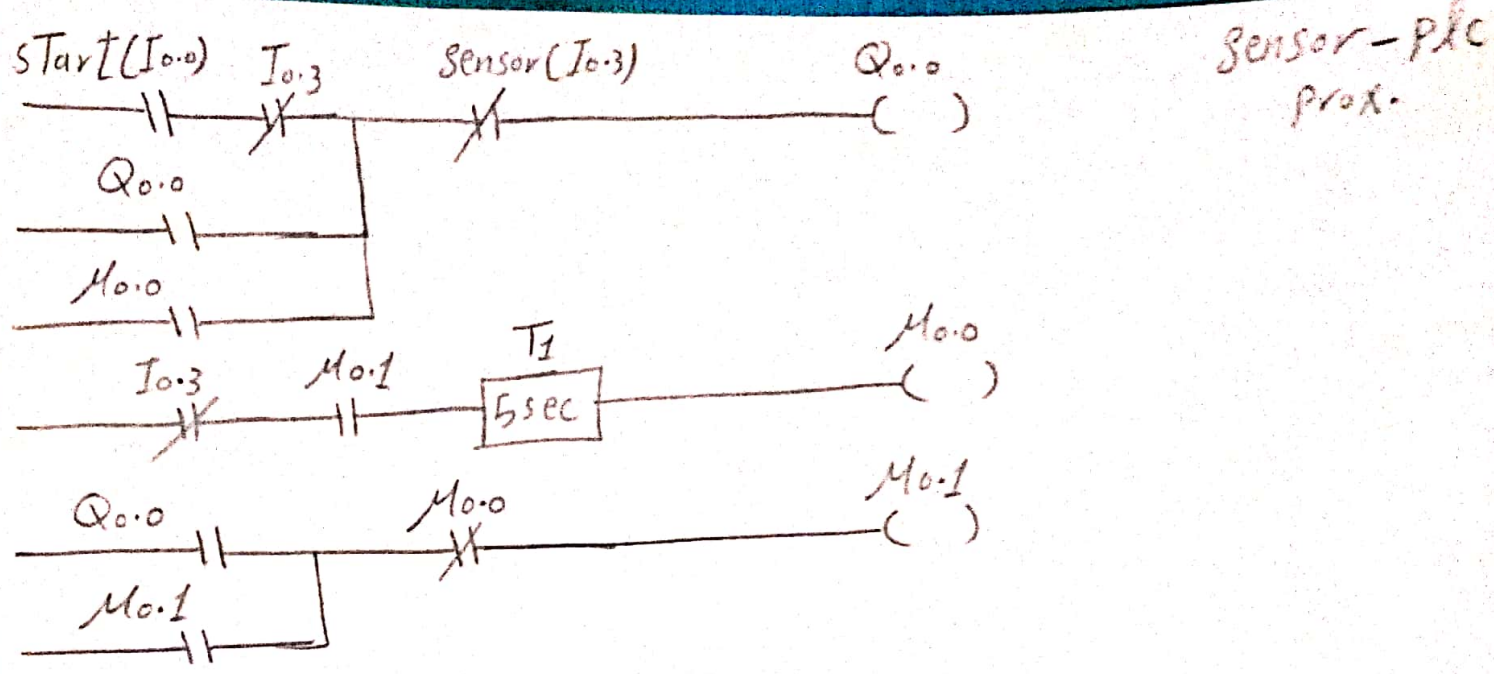 sTart(I0.0) I0.3 sensor(I0.3) Q0.0
sensor-plc
prox.
Q0.0
M0.0
T1 M0.0
I0.3 M0.1
5sec
Q0.0 M0.0 M0.1
M0.1